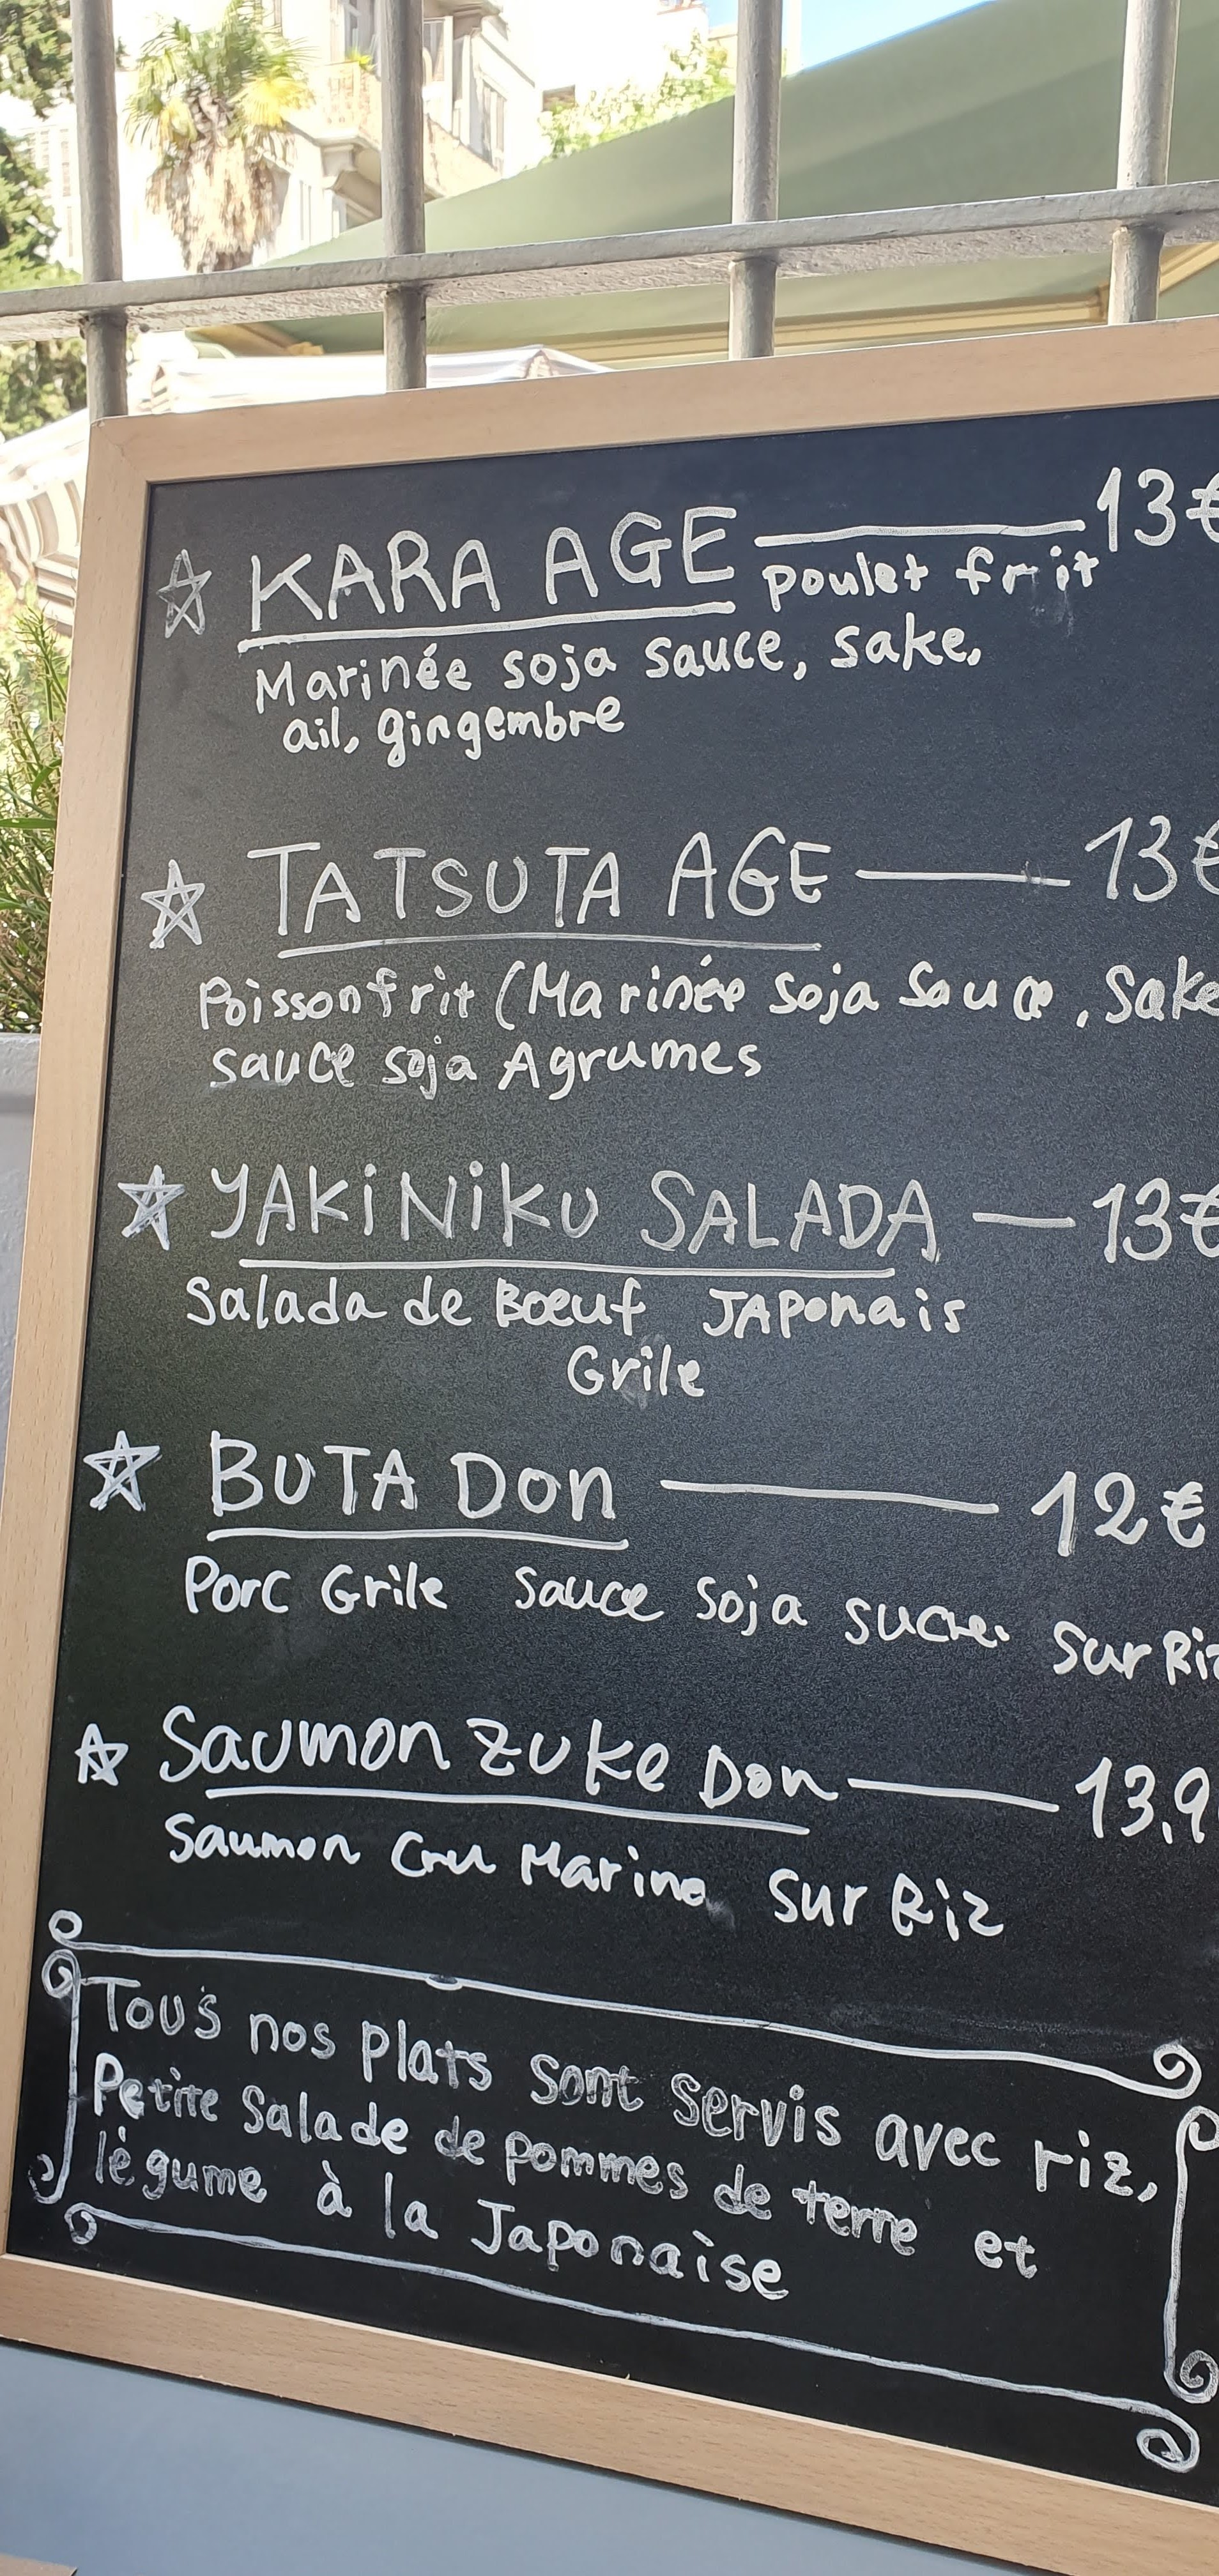 KARA AGE 13€
poulet frit
Marinée soja sauce, sake,
ail, gingembre
TATSUTA AGE 13€
Poisson frit (Marinée soja sauce, Sake
sauce soja Agrumes
YAKiNiKU SALADA 13€
Salada de Bœuf JAPonais
Grile
BUTA Don 12€
Porc Grile sauce soja sucre. sur Riz
Saumon zuke Don 13,9
Saumon Cru Marine sur Riz
Tous nos plats sont servis avec riz,
Petite Salade de pommes de terre et
légume à la Japonaise